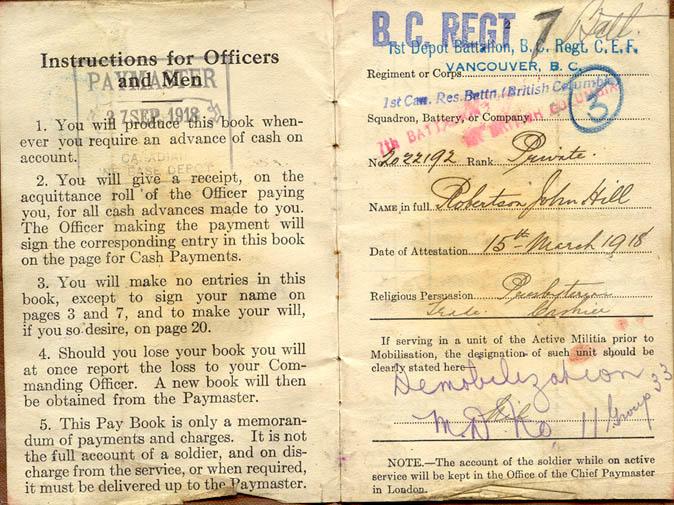 Instructions for Officers
and Men
PAYMASTER
27 SEP 1918
1. You will produce this book when-
ever you require an advance of cash on
account.
2. You will give a receipt, on the
acquittance roll of the Officer paying
you, for all cash advances made to you.
The Officer making the payment will
sign the corresponding entry in this book
on the page for Cash Payments.
3. You will make no entries in this
book, except to sign your name on
pages 3 and 7, and to make your will,
if you so desire, on page 20.
4. Should you lose your book you will
at once report the loss to your Com-
manding Officer. A new book will then
be obtained from the Paymaster.
5. This Pay Book is only a memoran-
dum of payments and charges. It is not
the full account of a soldier, and on dis-
charge from the service, or when required,
it must be delivered up to the Paymaster.
B. C. REGT 7 Batt.
2
1st Depot Battalion, B. C. Regt. C. E. F.
VANCOUVER, B. C.
Regiment or Corps
1st Can. Res. Battn. (British Columbia)
Squadron, Battery, or Company
7th BATTALION BRITISH COLUMBIA
3
No. 2022192 Rank Private.
NAME in full Robertson John Hill
Date of Attestation 15th March 1918
Religious Persuasion Presbyterian
Trade. Cashier
If serving in a unit of the Active Militia prior to
Mobilisation, the designation of such unit should be
clearly stated here
Demobilization
Nil
M.D No, 11 Group 33
NOTE.—The account of the soldier while on active
service will be kept in the Office of the Chief Paymaster
in London.